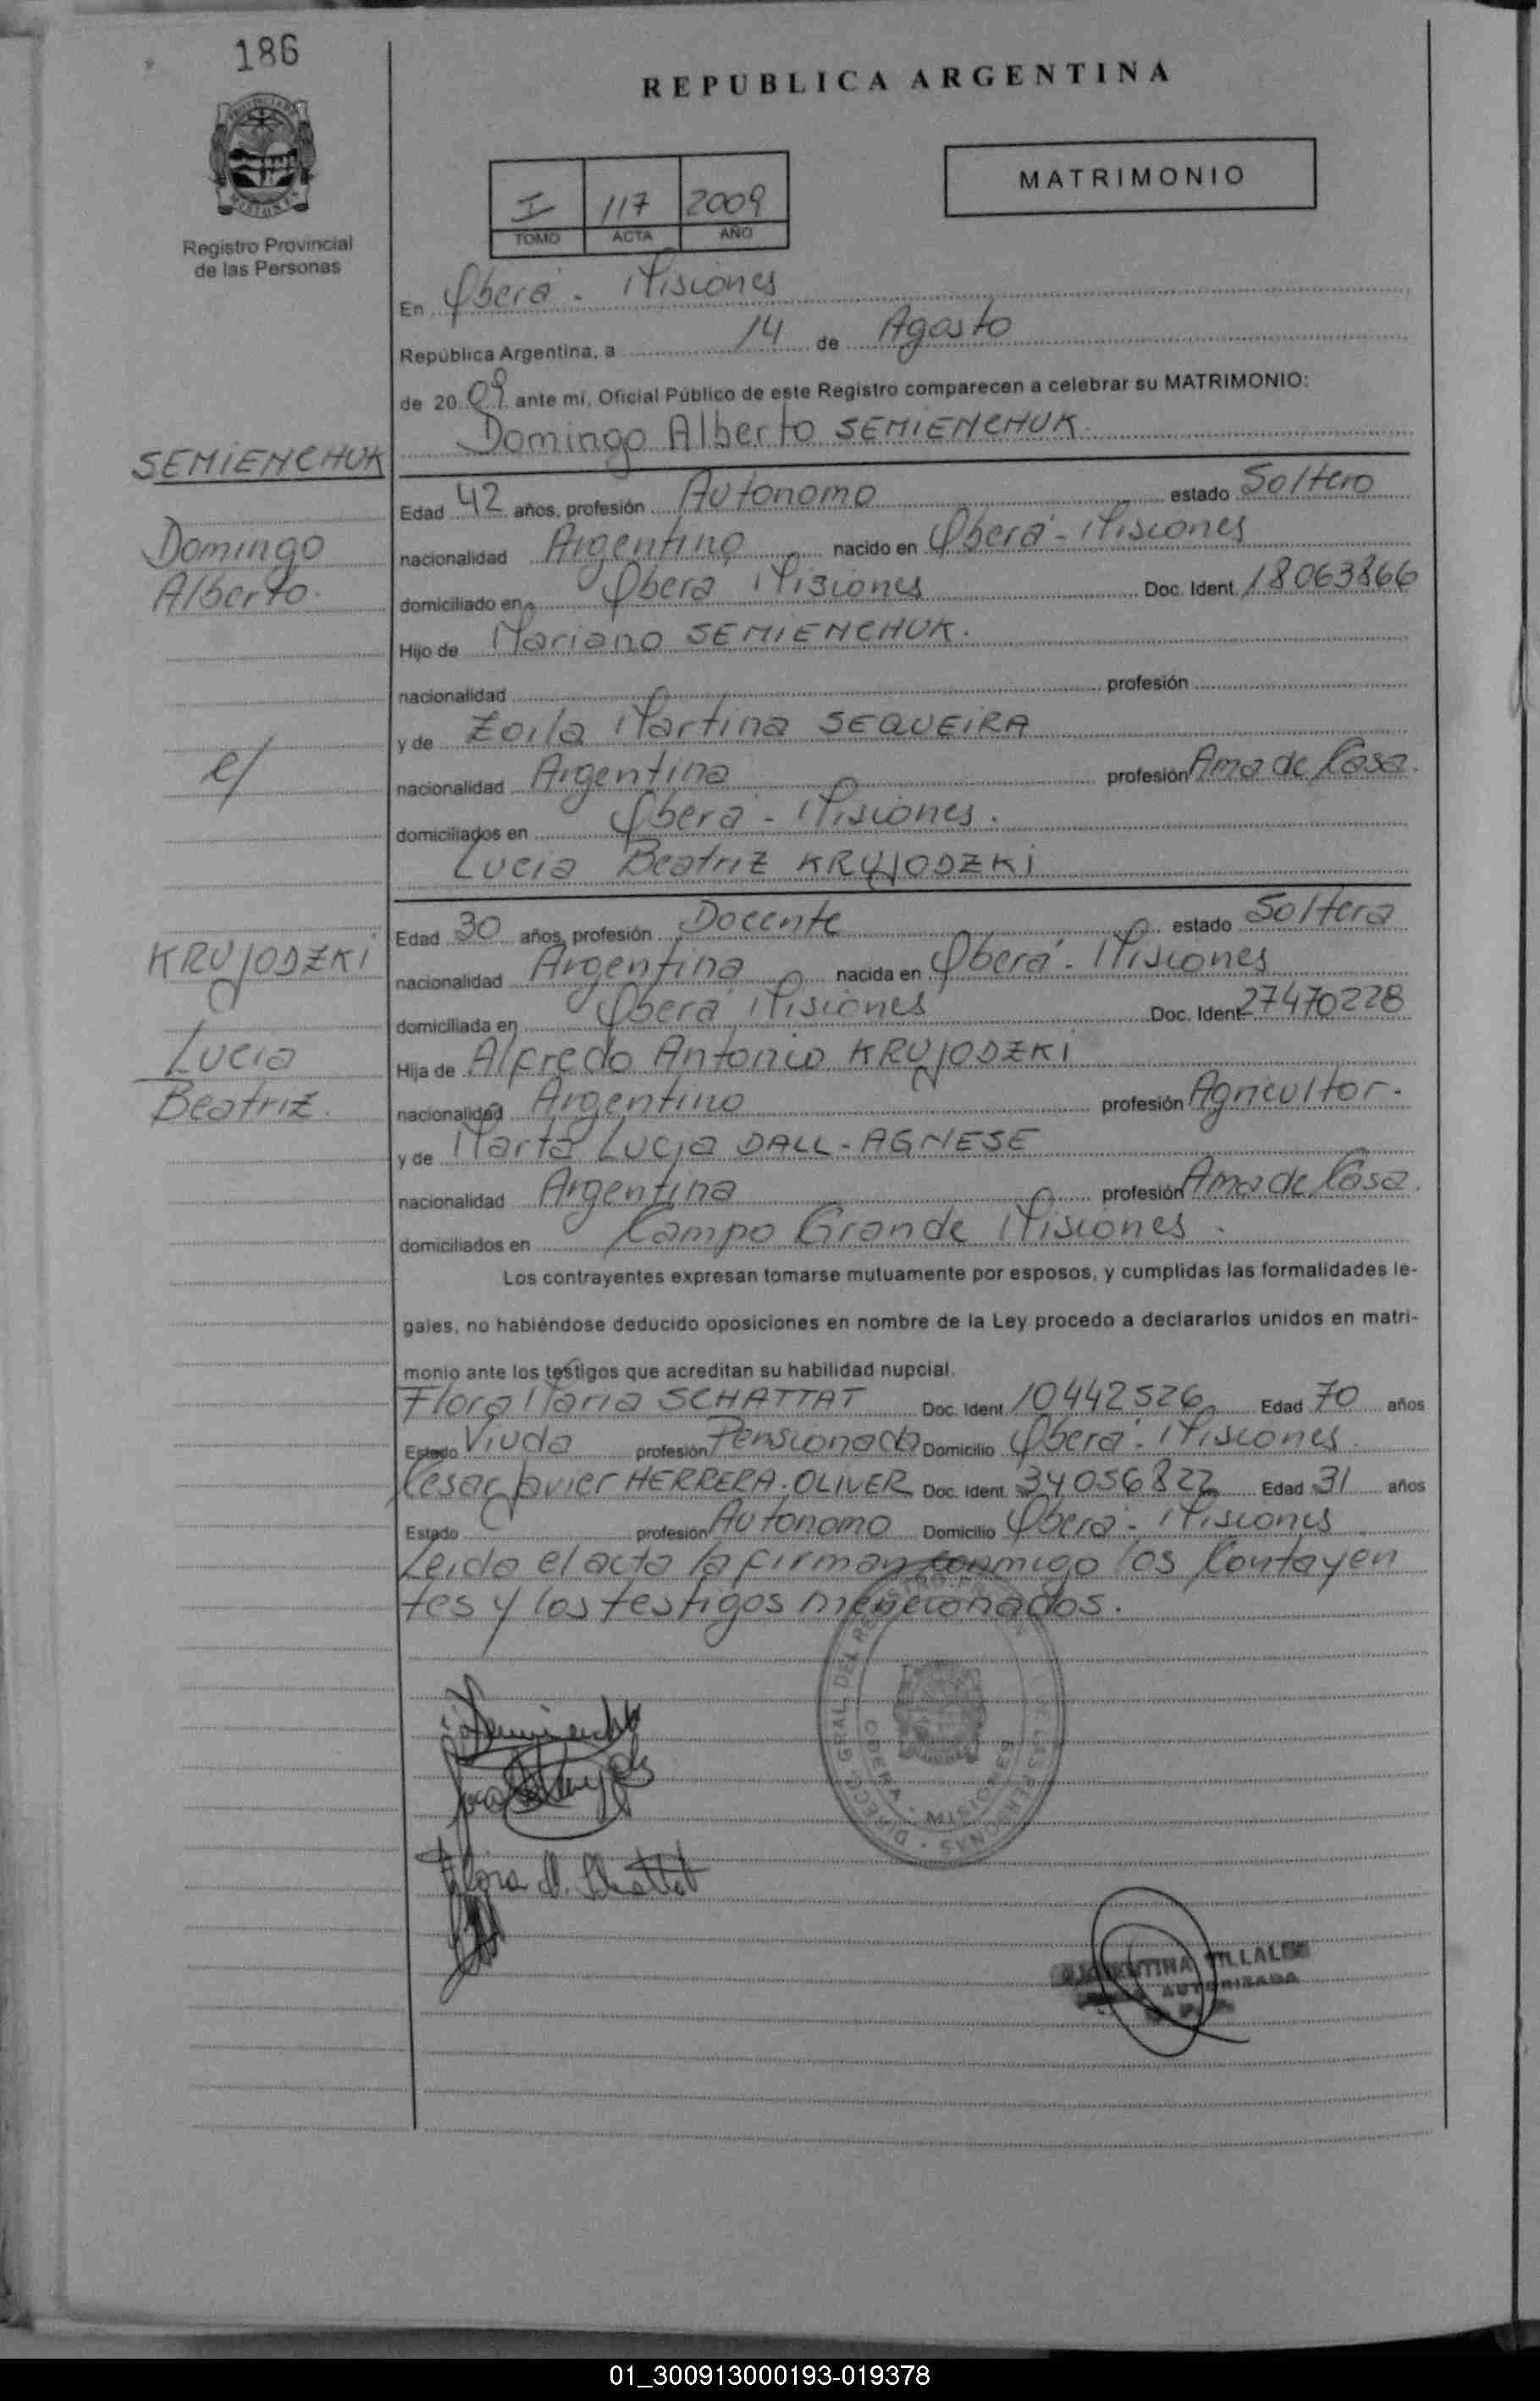 186
REPUBLICA ARGENTINA
MATRIMONIO
I 117 2009
TOMO ACTA AÑO
Registro Provincial
de las Personas
En Oberá - Misiones
República Argentina, a 14 de Agosto
de 20 09 ante mi, Oficial Público de este Registro comparecen a celebrar su MATRIMONIO:
Domingo Alberto SEMIENCHUK.
SEMIENCHUK
Edad 42 años, profesión Autonomo estado Soltero
Domingo
nacionalidad Argentino nacido en Oberá - Misiones
Alberto.
domiciliado en Oberá Misiones Doc. Ident. 18063866
Hijo de Mariano SEMIENCHUK.
nacionalidad profesión
y de Zoila Martina SEQUEIRA
c/
nacionalidad Argentina profesión Ama de Casa.
domiciliados en Oberá - Misiones.
Lucia Beatriz KRUJODZKI
Edad 30 años, profesión Docente estado Soltera
KRUJODZKI
nacionalidad Argentina nacida en Oberá - Misiones
domiciliada en Oberá Misiones Doc. Ident 27470228
Lucia
Hija de Alfredo Antonio KRUJODZKI
Beatriz.
nacionalidad Argentino profesión Agricultor.
y de Marta Lucia DALL-AGNESE
nacionalidad Argentina profesión Ama de Casa.
domiciliados en Campo Grande Misiones.
Los contrayentes expresan tomarse mutuamente por esposos, y cumplidas las formalidades le-
gales, no habiéndose deducido oposiciones en nombre de la Ley procedo a declararlos unidos en matri-
monio ante los testigos que acreditan su habilidad nupcial.
Flora Maria SCHATTAT Doc. Ident. 10442526 Edad 70 años
Estado Viuda profesión Pensionada Domicilio Oberá - Misiones.
Cesar Javier HERRERA-OLIVER Doc. Ident. 34056822 Edad 31 años
Estado profesión Autonomo Domicilio Oberá - Misiones
Leida el acta la firman conmigo los Contayen
tes y los testigos mencionados.
OBERA - MISIONES
Flora M. Schattat
AUTORIZADA
01_300913000193-019378